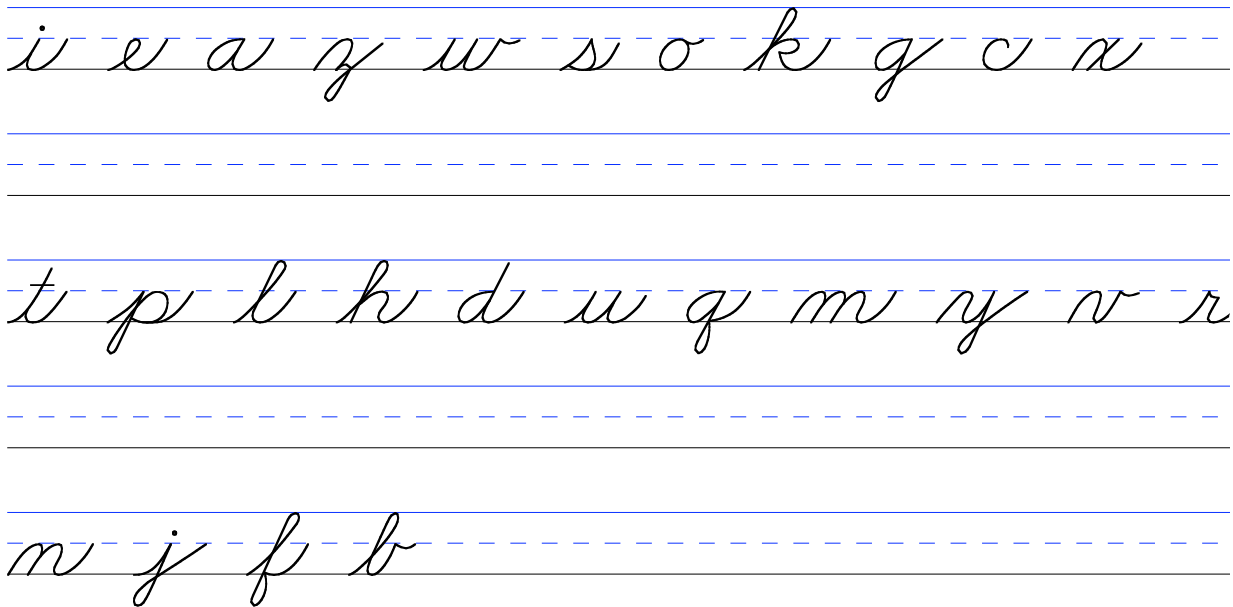 i e a z w s o k g c x
t p l h d u q m y v r
n j f b